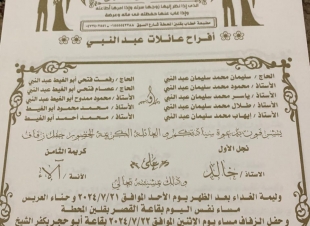 أفراح عائلات عبد النبي
الحاج / سليمان محمد سليمان عبد النبي
الحاج / رفعت فتحي أبو الغيط عبد النبي
الأستاذ / محمود محمد سليمان عبد النبي
الحاج / عصام فتحي أبو الغيط عبد النبي
الأستاذ / ياسر محمد سليمان عبد النبي
الأستاذ / محمود ممدوح أبو الغيط
الأستاذ / طلال محمد سليمان عبد النبي
الأستاذ / محمد محمود أبو الغيط
الأستاذ / إيهاب محمد سليمان عبد النبي
الأستاذ / محمد أحمد أبو الغيط
يتشرفون بدعوة سيادتكم و العائلة الكريمة لحضور حفل زفاف
نجل الأول
كريمة الثاني
الأستاذ / خالد
على
الآنسة / آلاء
وذلك بمشيئة الله تعالى
وليمة الغداء بعد الظهر يوم الأحد الموافق ٢٠٢٤/٧/٢١ وحناء العريس
مساء نفس اليوم بقاعة القصر بقلين المحطة
وحفل الزفاف مساء يوم الاثنين الموافق ٢٠٢٤/٧/٢٢ بقاعة أبو حجر بكفر الشيخ